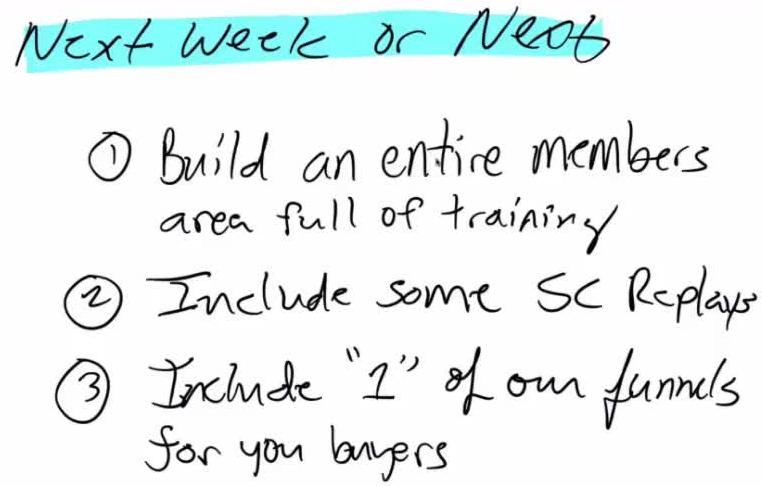 Next Week or
① Build an entire members
area full of training
② Include some SC Replays
③ Include "1" of our funnels
for you buyers